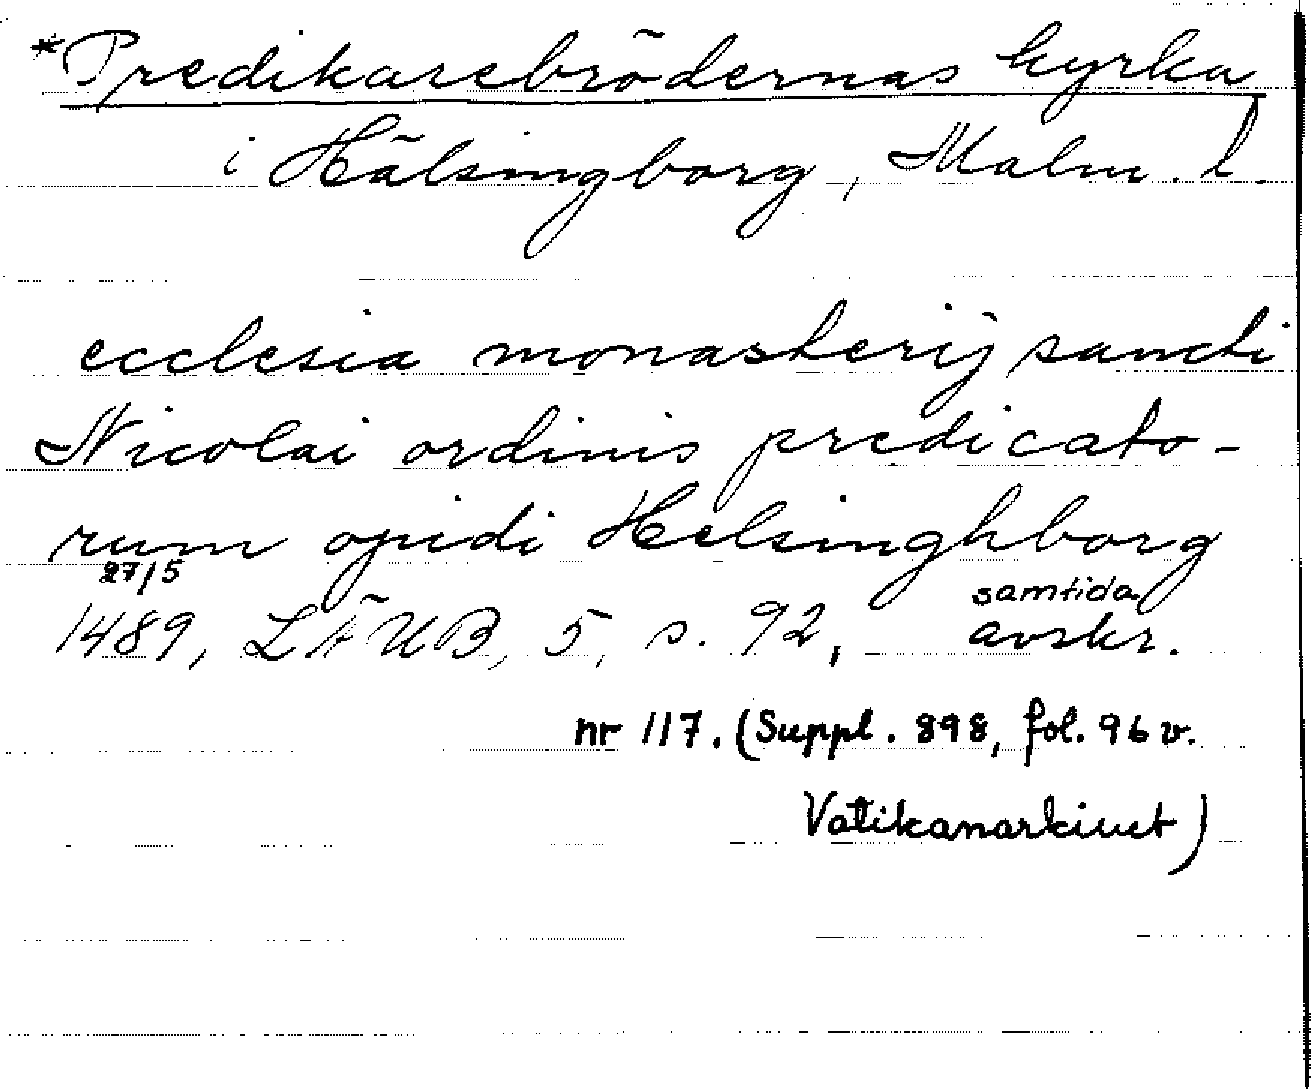 *Predikarebrödernas kyrka
i Hälsingborg, Malm. l.
ecclesia monasterij sancti
Nicolai ordinis predicato-
rum opidi Helsinghborg
27/5
1489, LÄUB, 5, s. 92, samtida avskr.
nr 117. (Suppl. 898, fol. 96 v.
Vatikanarkivet)